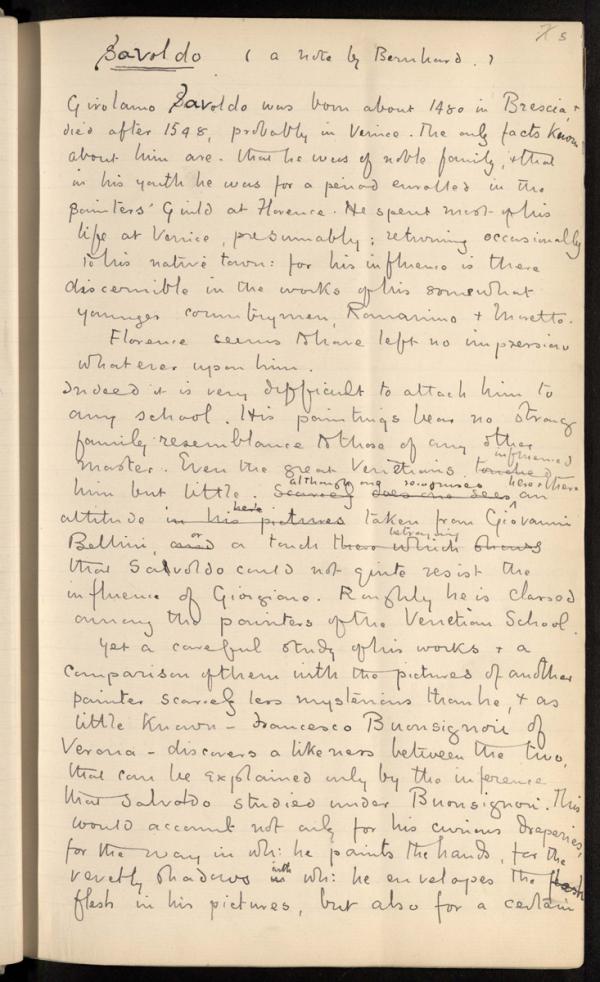 Savoldo ( a note by Bernhard. )
Girolamo Savoldo was born about 1480 in Brescia, +
died after 1548, probably in Venice. The only facts known
about him are. that he was of noble family, + that
in his youth he was for a period enrolled in the
painters' Guild at Florence. He spent most of his
life at Venice, presumably; returning occasionally
to his native town: for his influence is there
discernible in the works of his somewhat
younger countrymen, Romanino + Moretto.
Florence seems to have left no impression
whatever upon him.
Indeed it is very difficult to attach him to
any school. His paintings bear no strong
family resemblance to those of any other
master. Even the great Venetians touched influenced
him but little. Scarcely although one recognises does one sees here + there an
attitude in his pictures here taken from Giovanni
Bellini, and or a touch there which betraying shows
that Salvoldo could not quite resist the
influence of Giorgione. Roughly he is classed
among the painters of the Venetian School.
Yet a careful study of his works + a
comparison of them with the pictures of another
painter scarcely less mysterious than he, + as
little known - Francesco Buonsignori of
Verona - discovers a likeness between the two,
that can be explained only by the inference
that Salvoldo studied under Buonsignori. This
would account not only for his curious draperies,
for the way in wh: he paints the hands, for the
velvety shadows in with wh: he envelopes the flesh
flesh in his pictures, but also for a certain